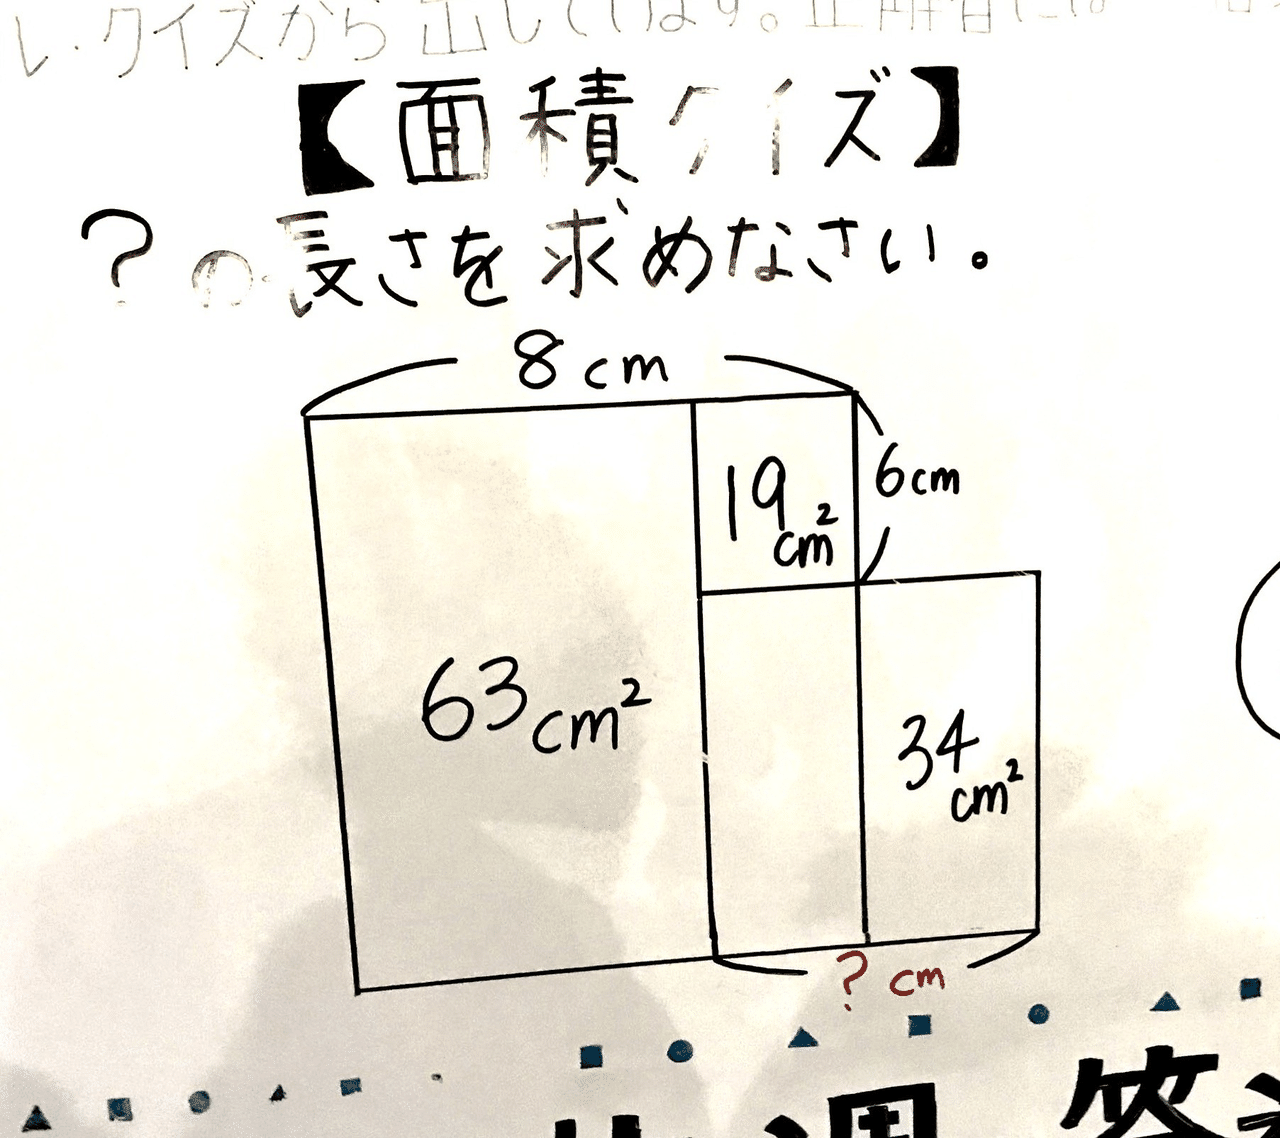 い.クイズから出しています。正解者には
【面積クイズ】
?の長さを求めなさい。
8cm
6cm
19cm²
63cm²
34cm²
?cm